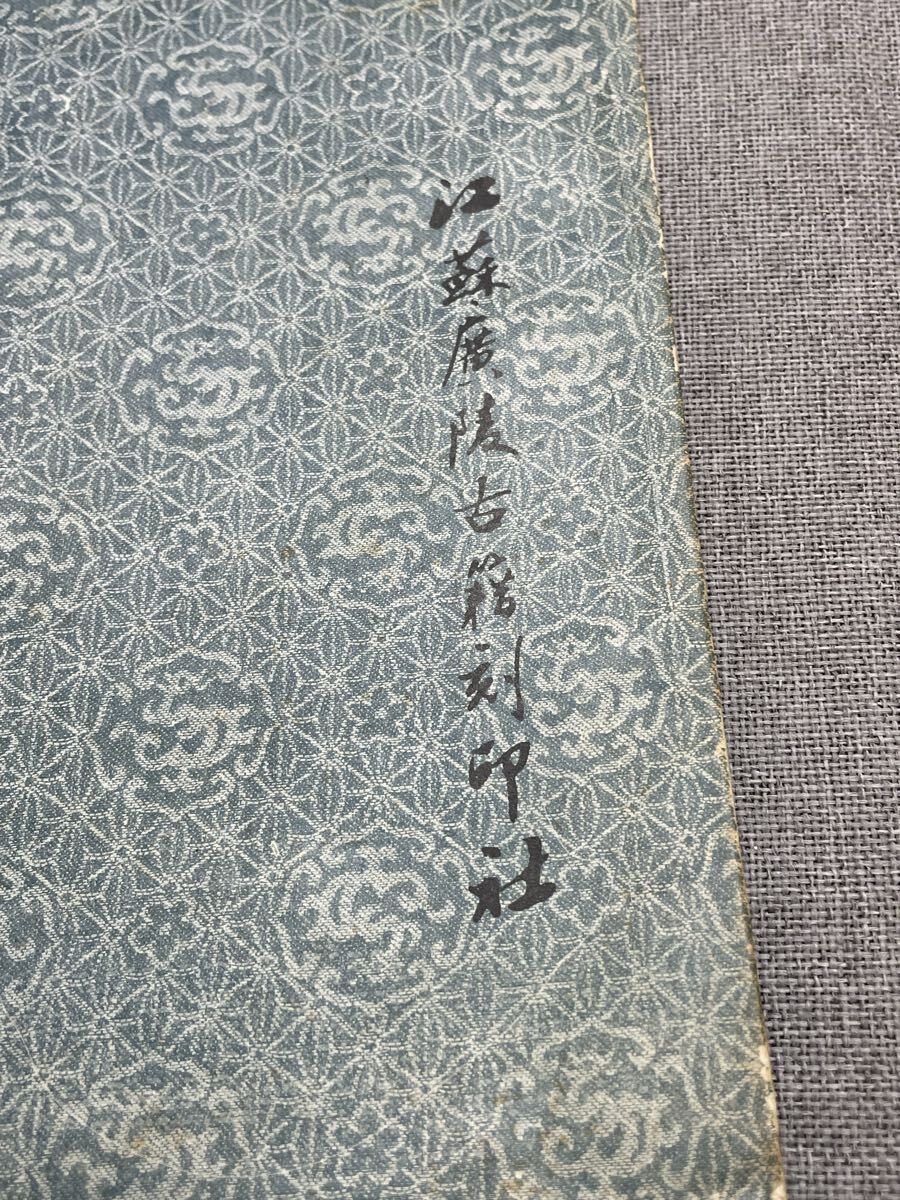 江蘇廣陵古籍刻印社